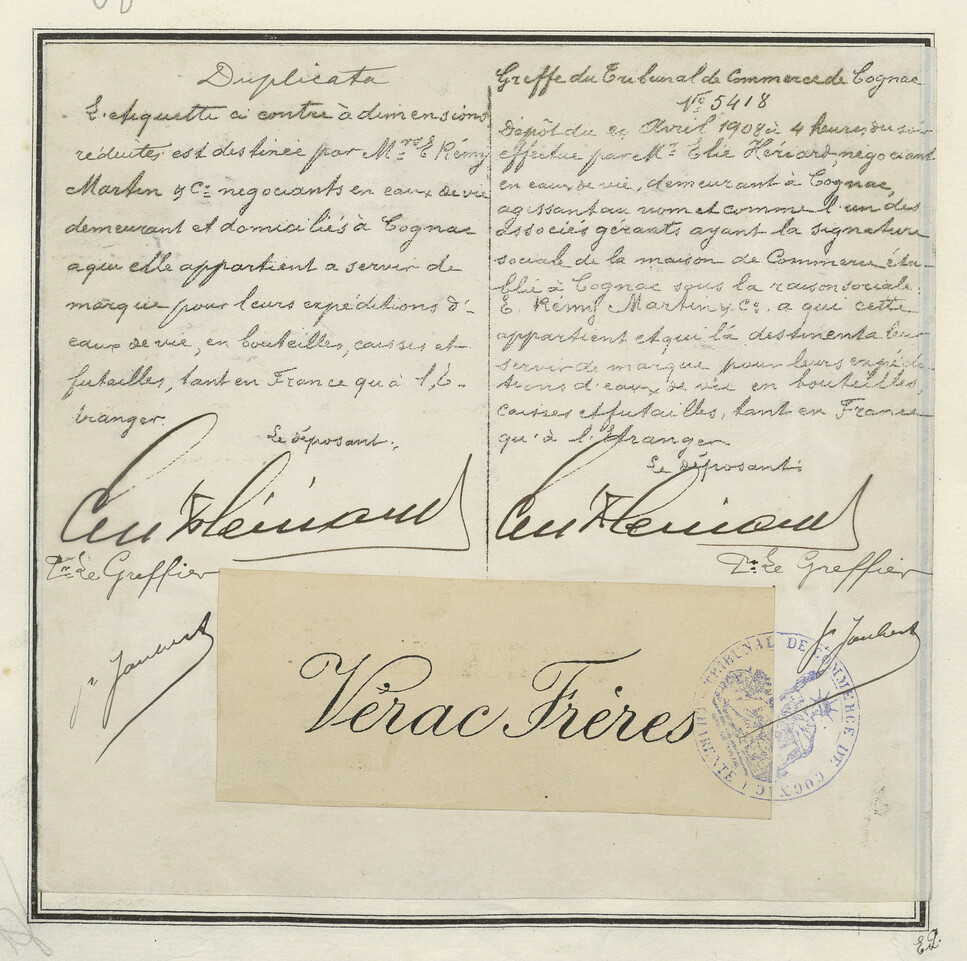 Duplicata
L'étiquette ci contre à dimensions
réduites, est destinée par Mrs E. Rémy
Martin & Co négociants en eaux de vie
demeurant et domiciliés à Cognac
a qui elle appartient a servir de
marque pour leurs expéditions d'-
eaux de vie, en bouteilles, caisses et
futailles, tant en France qu'à l'E-
tranger.
Le déposant:
Pr. Le Greffier
Greffe du Tribunal de Commerce de Cognac
No 5418
Dépôt du Avril 1908 à 4 heures du soir
effectué par Mr Elie Hériard, négociant
en eaux de vie, demeurant à Cognac,
agissant au nom et comme l'un des
associés gérants ayant la signature
sociale de la maison de Commerce éta-
blie à Cognac sous la raison sociale:
E. Rémy Martin & Co. a qui cette
appartient et qui la destinent a leur
servir de marque pour leurs expédi-
tions d'eaux de vie en bouteilles,
caisses et futailles, tant en France
qu'à l'Etranger
Le déposant:
Pr. Le Greffier
Vérac Frères
TRIBUNAL DE COMMERCE DE COGNAC